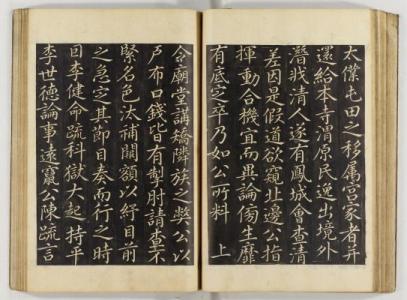 太僕屯田之移属宫家者并
還給本寺渭原民逸出境外
潛戕清人遂有鳳城會查清
差因是假道欲窺北邊公指
揮動合機宜而異論傷生靡
有底定卒乃如公所料 上
命廟堂講矯隣族之弊公以
戶布口錢皆有掣肘請查不
緊名色汰補闕額以紓目前
之急定其節目奏而行之時
因李健命疏科獄大起持平
李世德論事遠竄公陳疏言